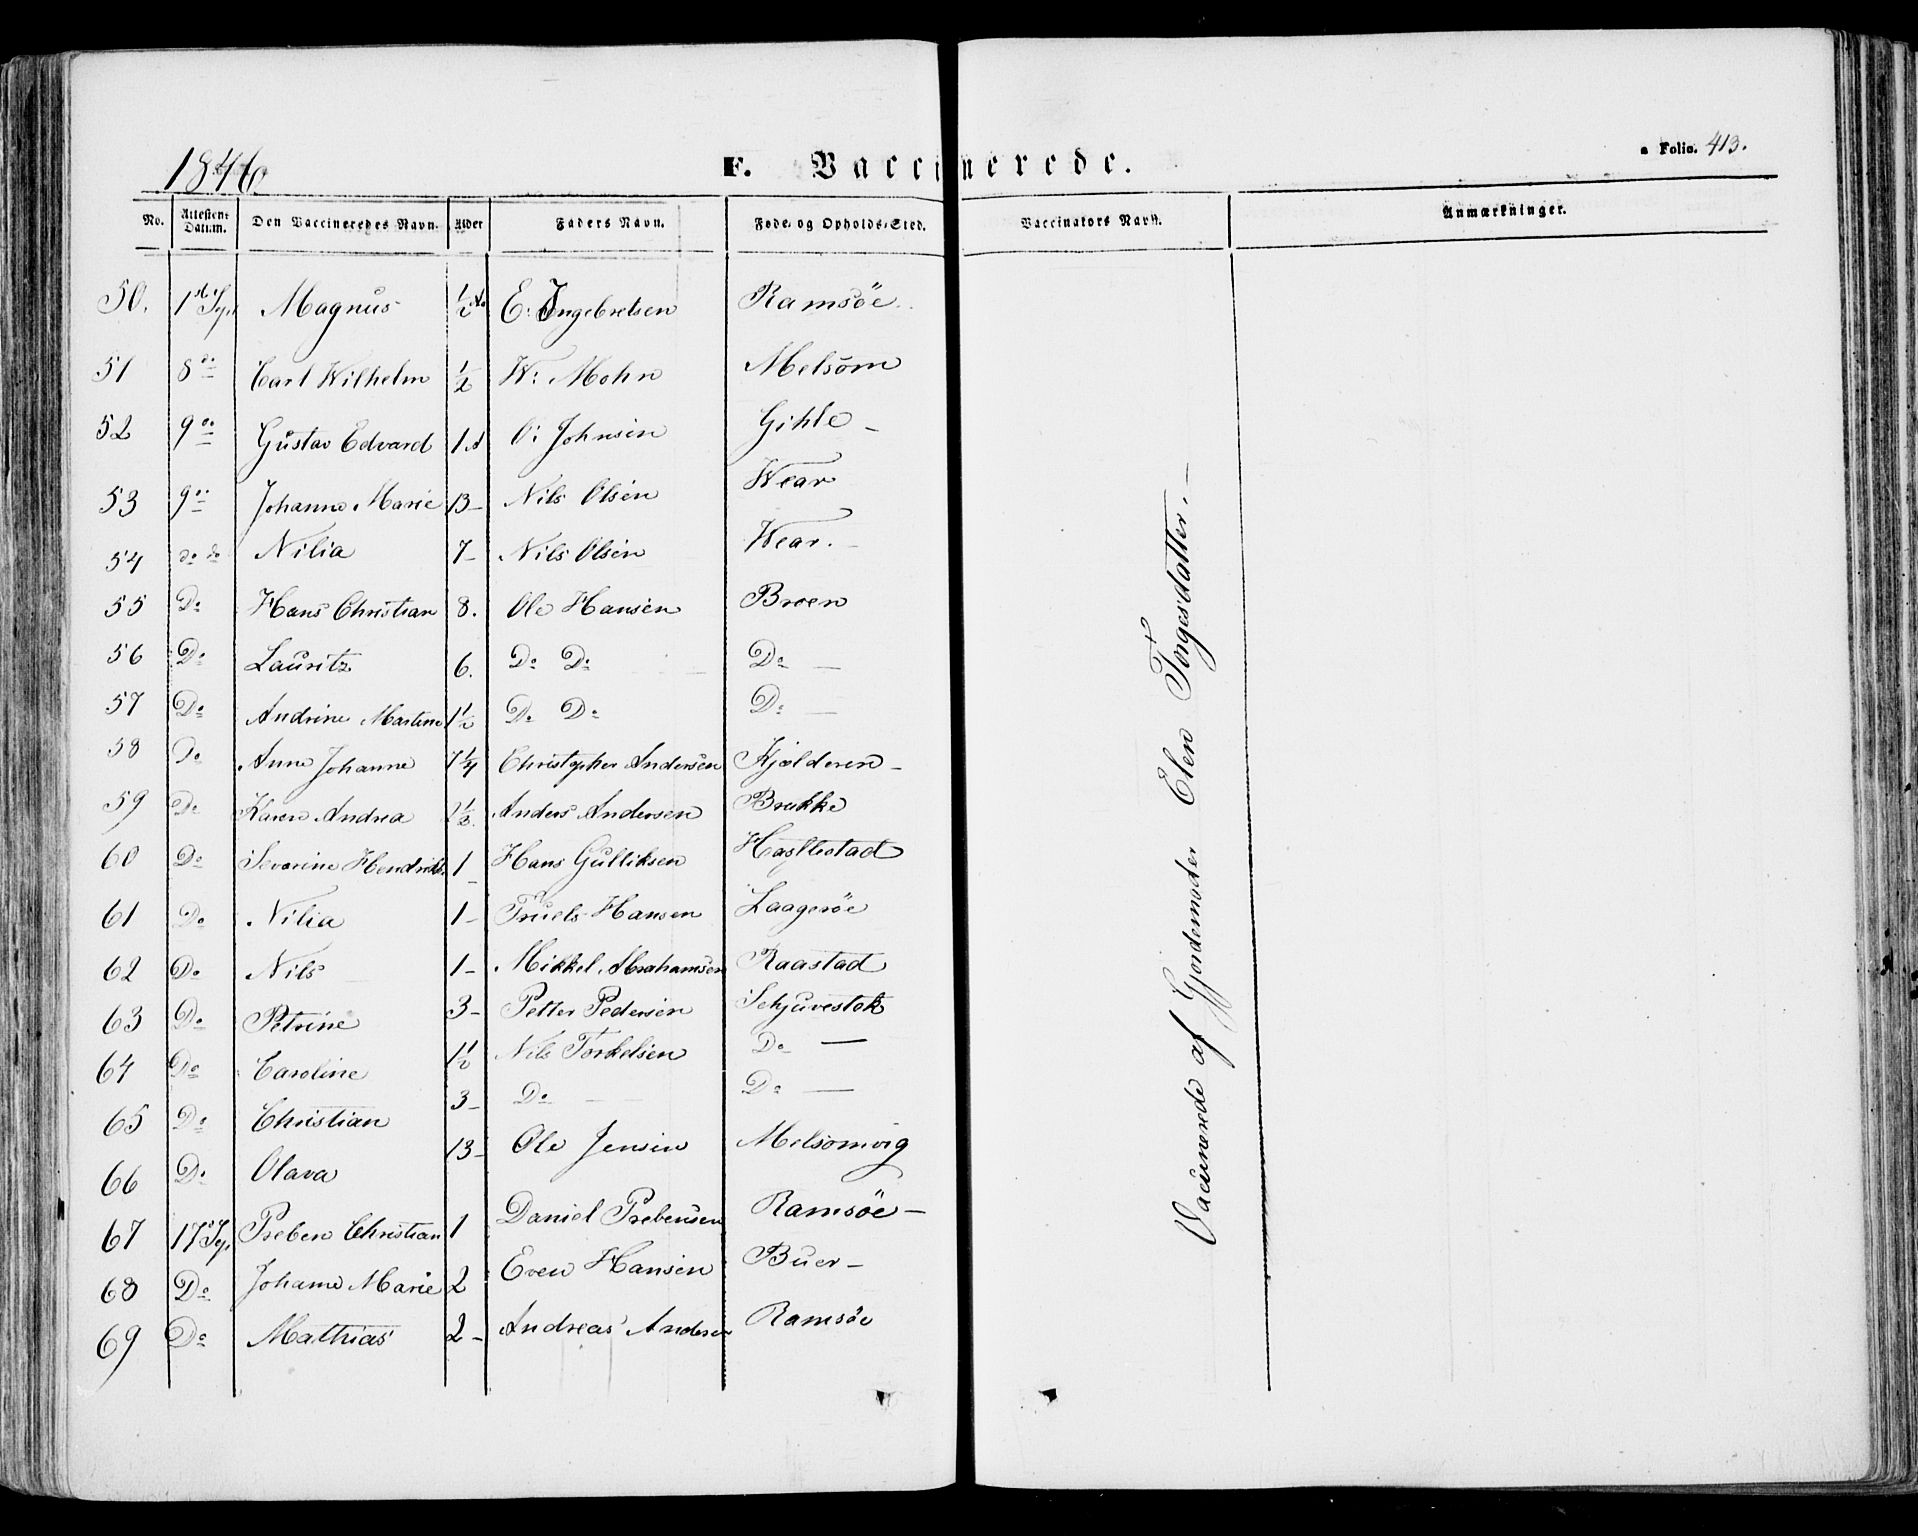 1846
F. Vaccinerede.
a Folio. 413.
No. Attestens Datum. Den Vaccineredes Navn. Alder Faders Navn. Føde- og Opholds-Sted. Vaccinators Navn. Anmærkninger.
50. 1st Sept Magnus ½ A. E. Ingebretsen Ramsöe
51 8 do Carl Wilhelm ½ W: Mohn Melsom
52 9 do Gustav Edvard 1 A O: Johnsen Gihle -
53 9 do Johanne Marie 13- Nils Olsen Wear
54 do do Nilia 7- Nils Olsen Wear. -
55 Do Hans Christian 8. Ole Hansen Broen
56 Do Lauritz 6. Do Do Do -
57 Do Andrine Martine 1½ Do Do Do -
58 Do Anne Johanne 7¼ Christopher Andersen Kjølderen -
59 Do Karen Andrea 1½ Anders Andersen Brekke
60 Do Severine Hendrikke 1- Hans Gulliksen Hasllestad
61 Do Nilia 1- Truels Hansen Laagerøe
62 Do Nils 1- Mikkel Abrahamsen Raastad
63 Do Petrine 3- Petter Pedersen Schjuvestok
64 Do Caroline 1½ Nils Torkelsen Do -
65 Do Christian 3- Do - - Do -
66 Do Olava 13- Ole Jensen Melsomvig
67 17 Sep. Preben Christian 1 Daniel Prebensen Ramsöe -
68 Do Johanne Marie 2 Even Hansen Buer -
69 Do Mathias 2- Andreas Andersen Ramsöe
Vacinerede af Gjordemoder Elen Torgesdatter. -